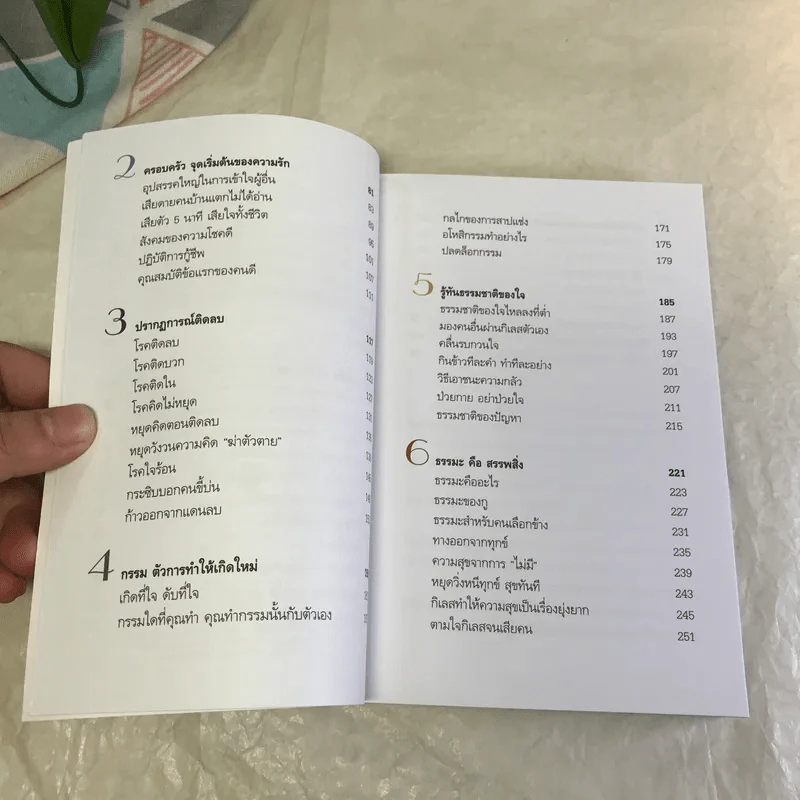 2 ครอบครัว จุดเริ่มต้นของความรัก 81
อุปสรรคใหญ่ในการเข้าใจผู้อื่น 83
เสียดายคนบ้านแตกไม่ได้อ่าน 89
เสียตัว 5 นาที เสียใจทั้งชีวิต 95
สังคมของความโชคดี 101
ปฏิบัติการกู้ชีพ 107
คุณสมบัติข้อแรกของคนดี 111
3 ปรากฏการณ์ติดลบ
โรคติดลบ
โรคติดบวก
โรคติดใน
โรคคิดไม่หยุด
หยุดคิดตอนติดลบ
หยุดวังวนความคิด "ฆ่าตัวตาย"
โรคใจร้อน
กระซิบบอกคนขี้บ่น
ก้าวออกจากแดนลบ
4 กรรม ตัวการทำให้เกิดใหม่
เกิดที่ใจ ดับที่ใจ
กรรมใดที่คุณทำ คุณทำกรรมนั้นกับตัวเอง
กลไกของการสาปแช่ง 171
อโหสิกรรมทำอย่างไร 175
ปลดล็อกกรรม 179
5 รู้ทันธรรมชาติของใจ 185
ธรรมชาติของใจไหลลงที่ต่ำ 187
มองคนอื่นผ่านกิเลสตัวเอง 193
คลื่นรบกวนใจ 197
กินข้าวทีละคำ ทำทีละอย่าง 201
วิธีเอาชนะความกลัว 207
ป่วยกาย อย่าป่วยใจ 211
ธรรมชาติของปัญหา 215
6 ธรรมะ คือ สรรพสิ่ง 221
ธรรมะคืออะไร 223
ธรรมะของกู 227
ธรรมะสำหรับคนเลือกข้าง 231
ทางออกจากทุกข์ 235
ความสุขจากการ "ไม่มี" 239
หยุดวิ่งหนีทุกข์ สุขทันที 243
กิเลสทำให้ความสุขเป็นเรื่องยุ่งยาก 245
ตามใจกิเลสจนเสียคน 251